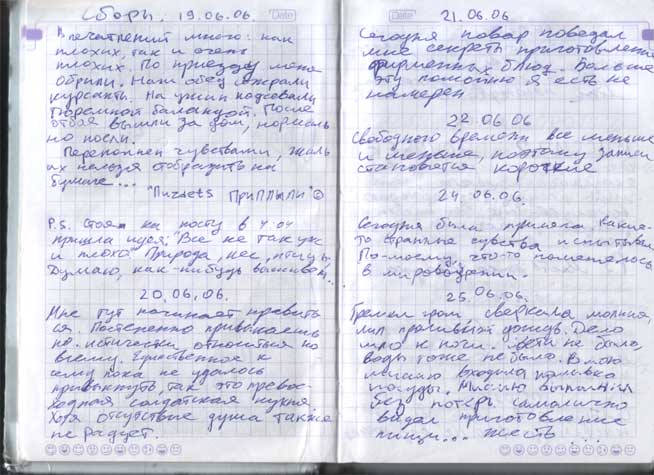 Сборы. 19.06.06. Date
Впечатлений много: как
плохих, так и очень
плохих. По приезду меня
обрили. Наш обед сожрали
курсанты. На ужин надсовали
тюремной баландой. После
отбоя вышли за дом, нормаль
но поели.
Переполнен чувствами, жаль
их нельзя отобразить на
бумаге...
"Пиzдеts приплыли" ☺
P.S. Стоял на посту в 4:04
пришла идея: "Все не так уж
и плохо. Природа, лес, птицы.
Думаю, как-нибудь выживем..
20.06.06.
Мне тут начинает нравить
ся. Постепенно привыкаешь
по-истически относиться ко
всему. Единственное к
чему пока не удалось
привыкнуть, так это превос-
ходная солдатская кухня.
Хотя отсутствие душа также
не радует.
Date 21.06.06.
Сегодня повар поведал
мне секреты приготовления
фирменных блюд. Больше
эту помойню я есть не
намерен
22.06.06
Свободного времени все меньше
и меньше, поэтому записи
становятся короткие
24.06.06.
Сегодня была присяга. Какие-
то странные чувства испытывал.
По-моему, что-то поменялось
в мировоззрении.
25.06.06.
Гремел гром, сверкала молния,
лил проливной дождь. Дело
шло к ночи. Света не было,
воды тоже не было. В мою
миссию входила помывка
посуды. Миссию выполнил
без потерь. Самолично
видел приготовление
пищи... жесть...